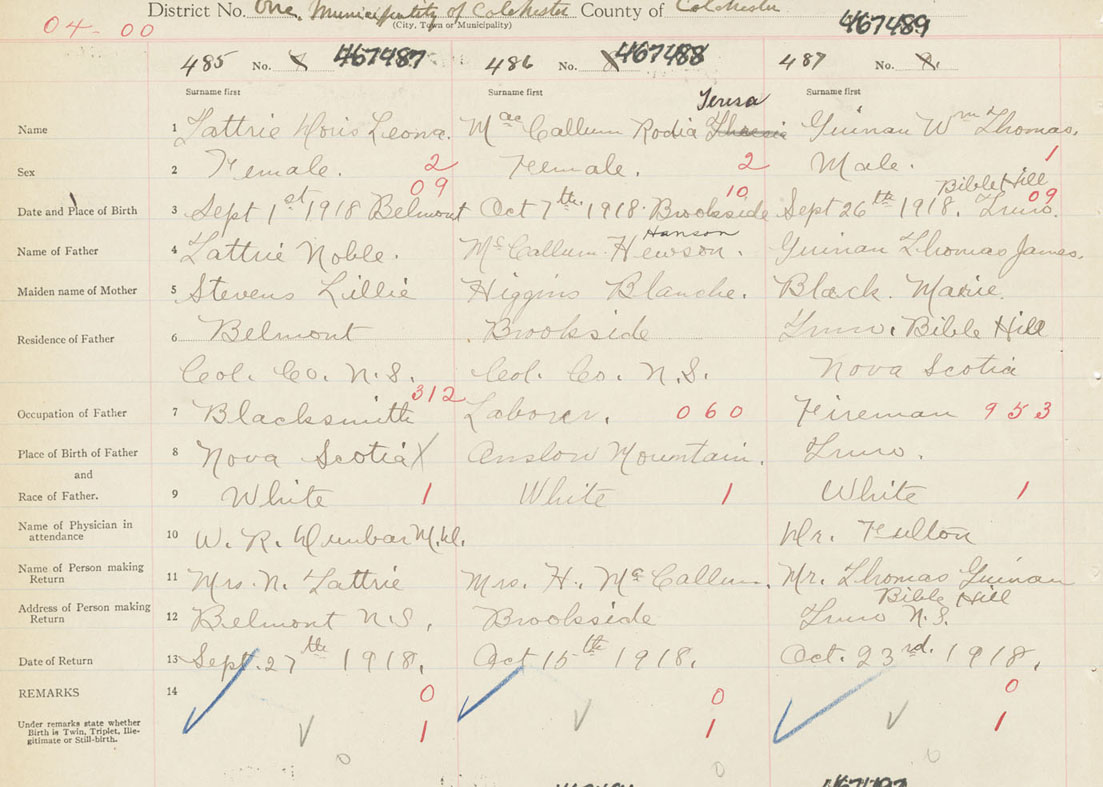 District No. One, Municipality of Colchester County of Colchester
(City, Town or Municipality)
04-00
467489
485 No. 8 467487 486 No. 8 467488 487 No. 8.
Surname first Surname first Surname first
Teresa
Name 1 Lattrie Doris Leona. Mac Callum Rodia Guinan Wm Thomas.
Sex 2 Female. 2 Female. 2 Male. 1
09 10 Bible Hill 09
Date and Place of Birth 3 Sept 1st 1918 Belmont Oct 7th 1918 Brookside Sept 26th 1918. Truro.
Hanson
Name of Father 4 Lattrie Noble. McCallum Hewson. Guinan Thomas James.
Maiden name of Mother 5 Stevens Lillie Higgins Blanche. Black. Marie.
Residence of Father 6 Belmont Brookside Truro. Bible Hill
Col. Co. N.S. Col. Co. N.S. Nova Scotia
312
Occupation of Father 7 Blacksmith Laborer. 060 Fireman 953
Place of Birth of Father 8 Nova Scotia X Onslow Mountain. Truro.
and
Race of Father. 9 White 1 White 1 White 1
Name of Physician in
attendance 10 W. R. Dunbar M.D. Dr. Fulton
Name of Person making
Return 11 Mrs. N. Lattrie Mrs. H. McCallum. Mr. Thomas Guinan
Bible Hill
Address of Person making
Return 12 Belmont N.S. Brookside Truro N.S.
Date of Return 13 Sept. 27th 1918. Oct 15th 1918. Oct. 23rd. 1918.
REMARKS 14 0 0 0
Under remarks state whether
Birth is Twin, Triplet, Ille-
gitimate or Still-birth. 1 1 1
0 0 0